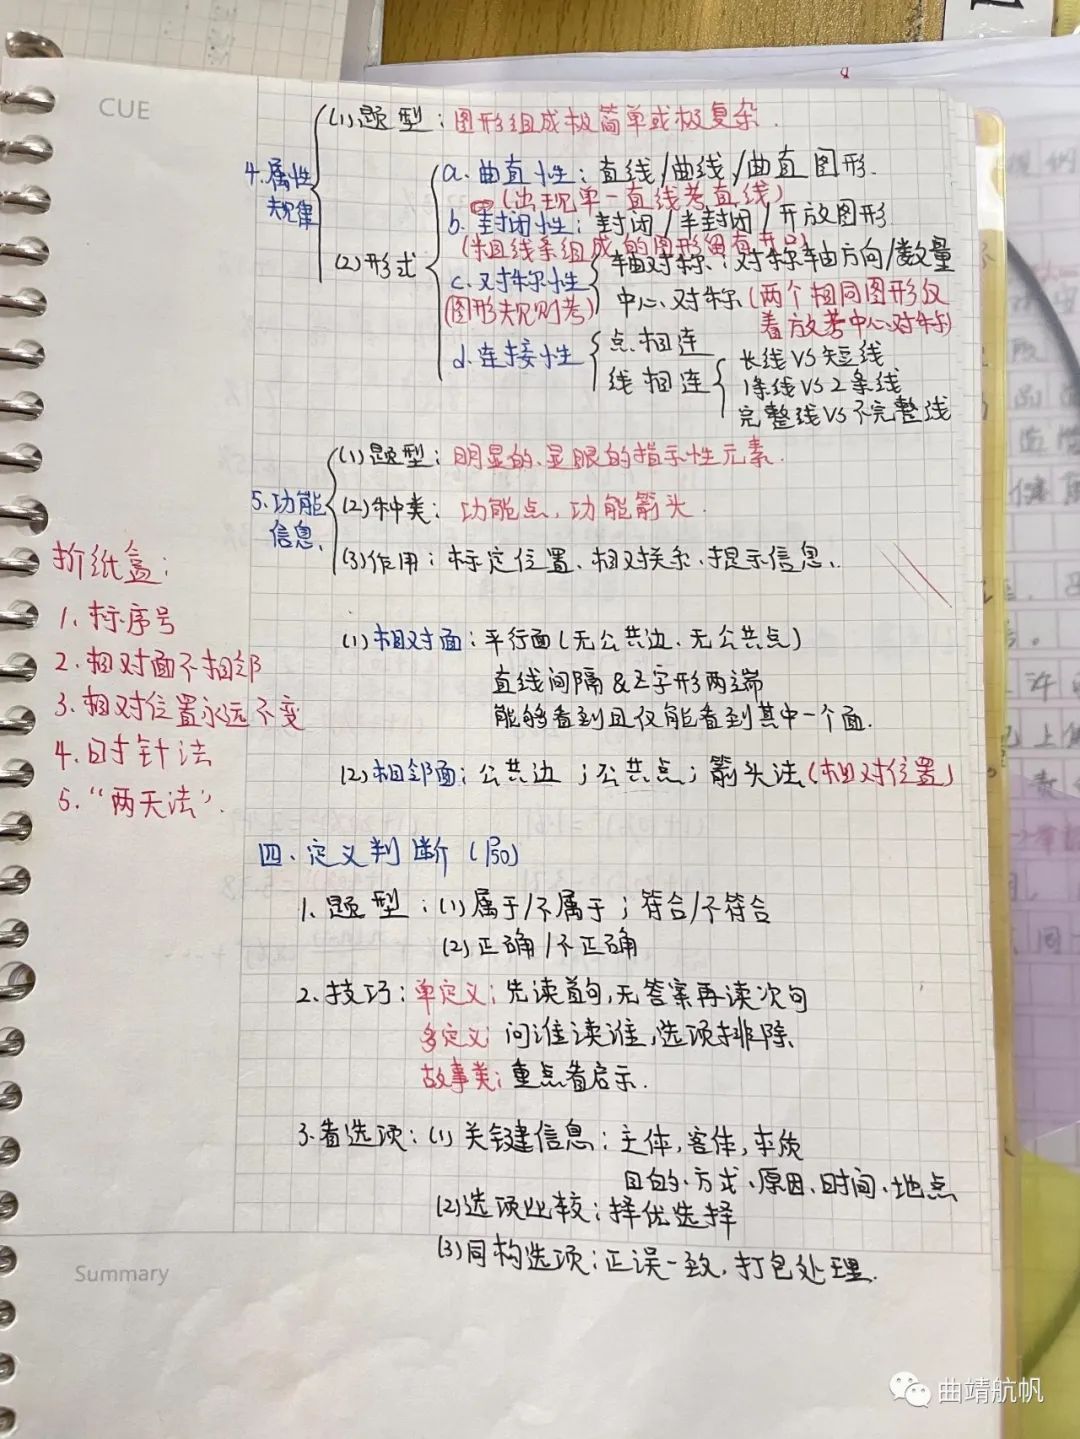 CUE
(1)题型：图形组成极简单或极复杂.
4.属性规律
a.曲直性：直线/曲线/曲直图形.
(出现单一直线考直线)
b.封闭性：封闭/半封闭/开放图形
(粗线条组成的图形留有开口)
(2)形式
c.对称性
轴对称：对称轴方向/数量
(图形规则考)
中心对称(两个相同图形仅
着放考中心对称)
d.连接性
点相连
线相连
长线VS短线
1条线VS2条线
完整线VS不完整线
(1)题型：明显的、显眼的指示性元素.
5.功能信息.
(2)种类：功能点，功能箭头.
(3)作用：标定位置、相对关系、提示信息.
折纸盒：
1.标序号
2.相对面不相邻
3.相对位置永远不变
4.时针法
5.“两天法”.
(1)相对面：平行面(无公共边、无公共点)
直线间隔&Z字形两端
能够看到且仅能看到其中一个面.
(2)相邻面：公共边；公共点；箭头法(相对位置)
四、定义判断(
1.题型：(1)属于/不属于；符合/不符合
(2)正确/不正确
2.技巧：单定义：先读首句，无答案再读次句
多定义：问谁读谁，选项排除.
故事类：重点看启示.
3.看选项：(1)关键信息：主体，客体，本质
目的、方式、原因、时间、地点
(2)选项比较：择优选择
(3)同构选项：正误一致，打包处理.
Summary
曲靖航帆